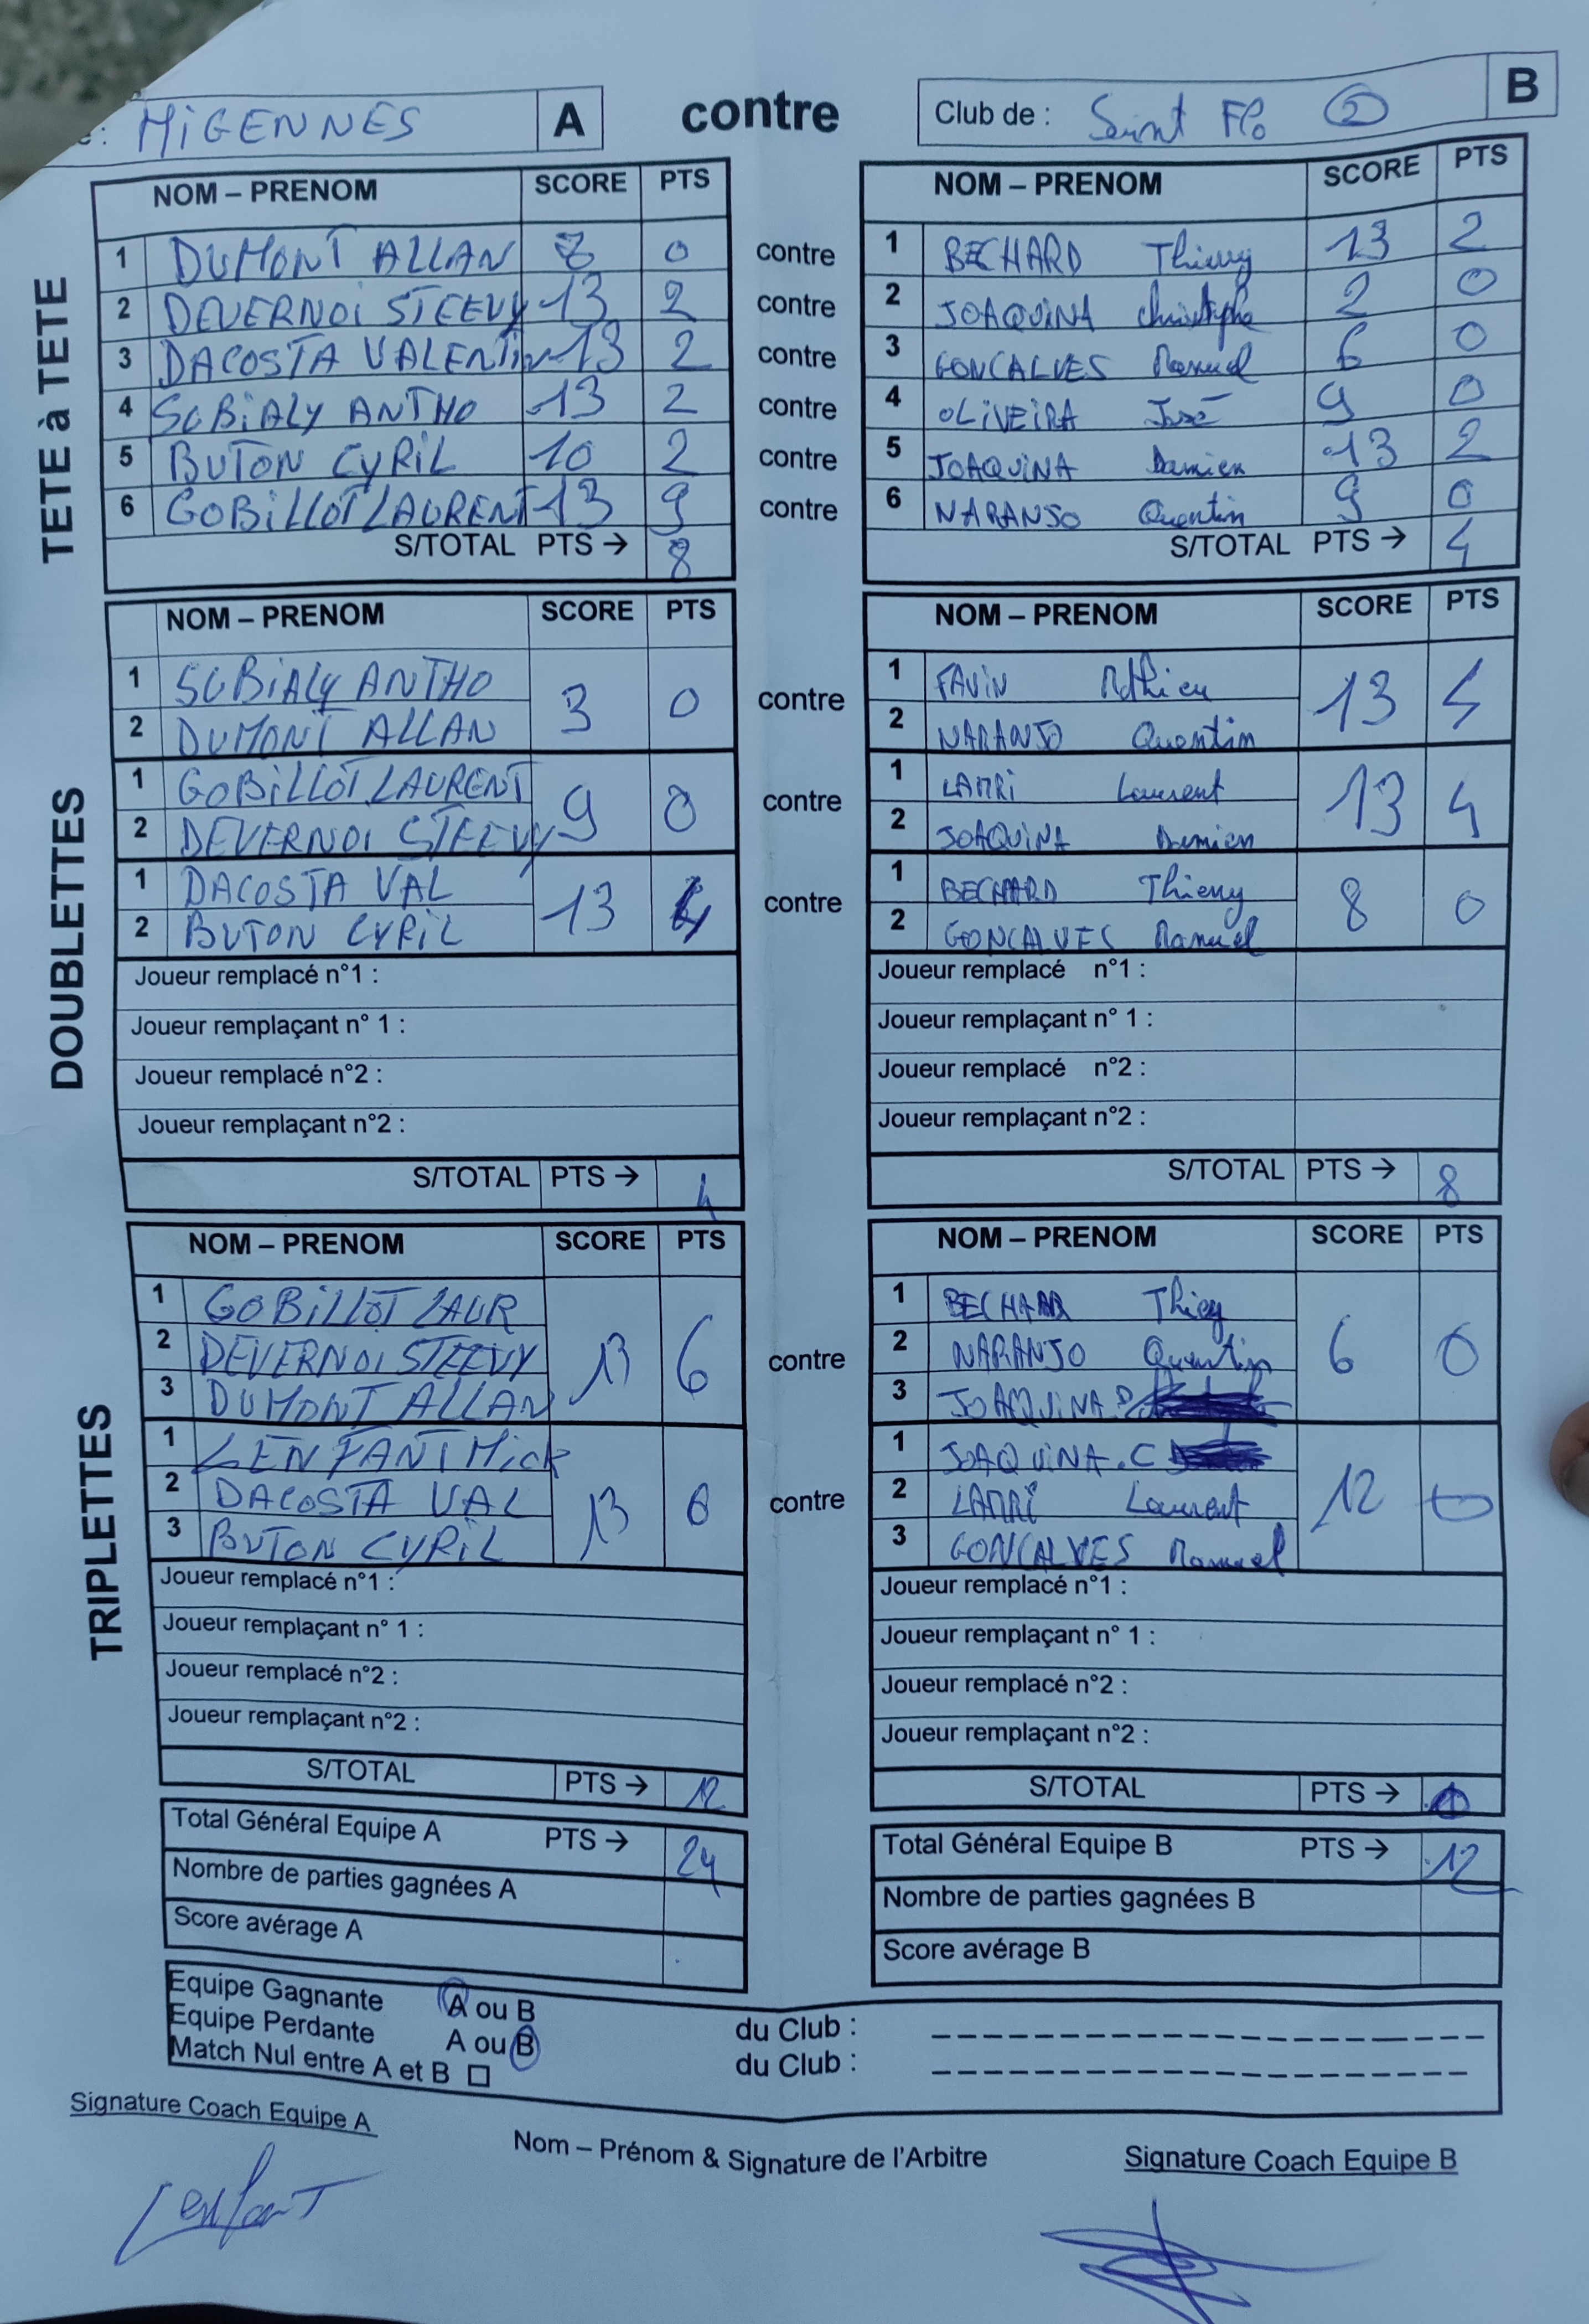 e : MIGENNES A contre Club de : Saint Flo ② B
NOM – PRENOM SCORE PTS NOM – PRENOM SCORE PTS
TETE à TETE
1 DUMONT ALLAN 0 contre 1 BECHARD Thierry 13 2
2 DEVERNOI STEEVY 13 2 contre 2 JOAQUINA Christophe 2 0
3 DACOSTA VALENTIN 13 2 contre 3 GONCALVES Manuel 6 0
4 SOBIALY ANTHO 13 2 contre 4 OLIVEIRA José 9 0
5 BUTON CYRIL 10 2 contre 5 JOAQUINA Damien 13 2
6 GOBILLOT LAURENT 13 9 contre 6 NARANJO Quentin 9 0
S/TOTAL PTS → 8 S/TOTAL PTS → 4
NOM – PRENOM SCORE PTS NOM – PRENOM SCORE PTS
DOUBLETTES
1 SOBIALY ANTHO 3 0 contre 1 FAVIN Mathieu 13 4
2 DUMONT ALLAN 2 NARANJO Quentin
1 GOBILLOT LAURENT 9 0 contre 1 LAMRI Laurent 13 4
2 DEVERNOI STEEVY 2 JOAQUINA Damien
1 DACOSTA VAL 13 4 contre 1 BECHARD Thierry 8 0
2 BUTON CYRIL 2 GONCALVES Manuel
Joueur remplacé n°1 : Joueur remplacé n°1 :
Joueur remplaçant n° 1 : Joueur remplaçant n° 1 :
Joueur remplacé n°2 : Joueur remplacé n°2 :
Joueur remplaçant n°2 : Joueur remplaçant n°2 :
S/TOTAL PTS → 4 S/TOTAL PTS → 8
NOM – PRENOM SCORE PTS NOM – PRENOM SCORE PTS
TRIPLETTES
1 GOBILLOT LAUR 1 BECHARD Thierry
2 DEVERNOI STEEVY 13 6 contre 2 NARANJO Quentin 6 0
3 DUMONT ALLAN 3 JOAQUINA D
1 LENFANT Mick 1 JOAQUINA.C
2 DACOSTA VAL 13 6 contre 2 LAMRI Laurent 12 0
3 BUTON CYRIL 3 GONCALVES Manuel
Joueur remplacé n°1 : Joueur remplacé n°1 :
Joueur remplaçant n° 1 : Joueur remplaçant n° 1 :
Joueur remplacé n°2 : Joueur remplacé n°2 :
Joueur remplaçant n°2 : Joueur remplaçant n°2 :
S/TOTAL PTS → 12 S/TOTAL PTS →
Total Général Equipe A PTS → 24 Total Général Equipe B PTS → 12
Nombre de parties gagnées A Nombre de parties gagnées B
Score avérage A Score avérage B
Equipe Gagnante A ou B du Club :
Equipe Perdante A ou B du Club :
Match Nul entre A et B □
Signature Coach Equipe A Nom – Prénom & Signature de l'Arbitre Signature Coach Equipe B
Lenfant